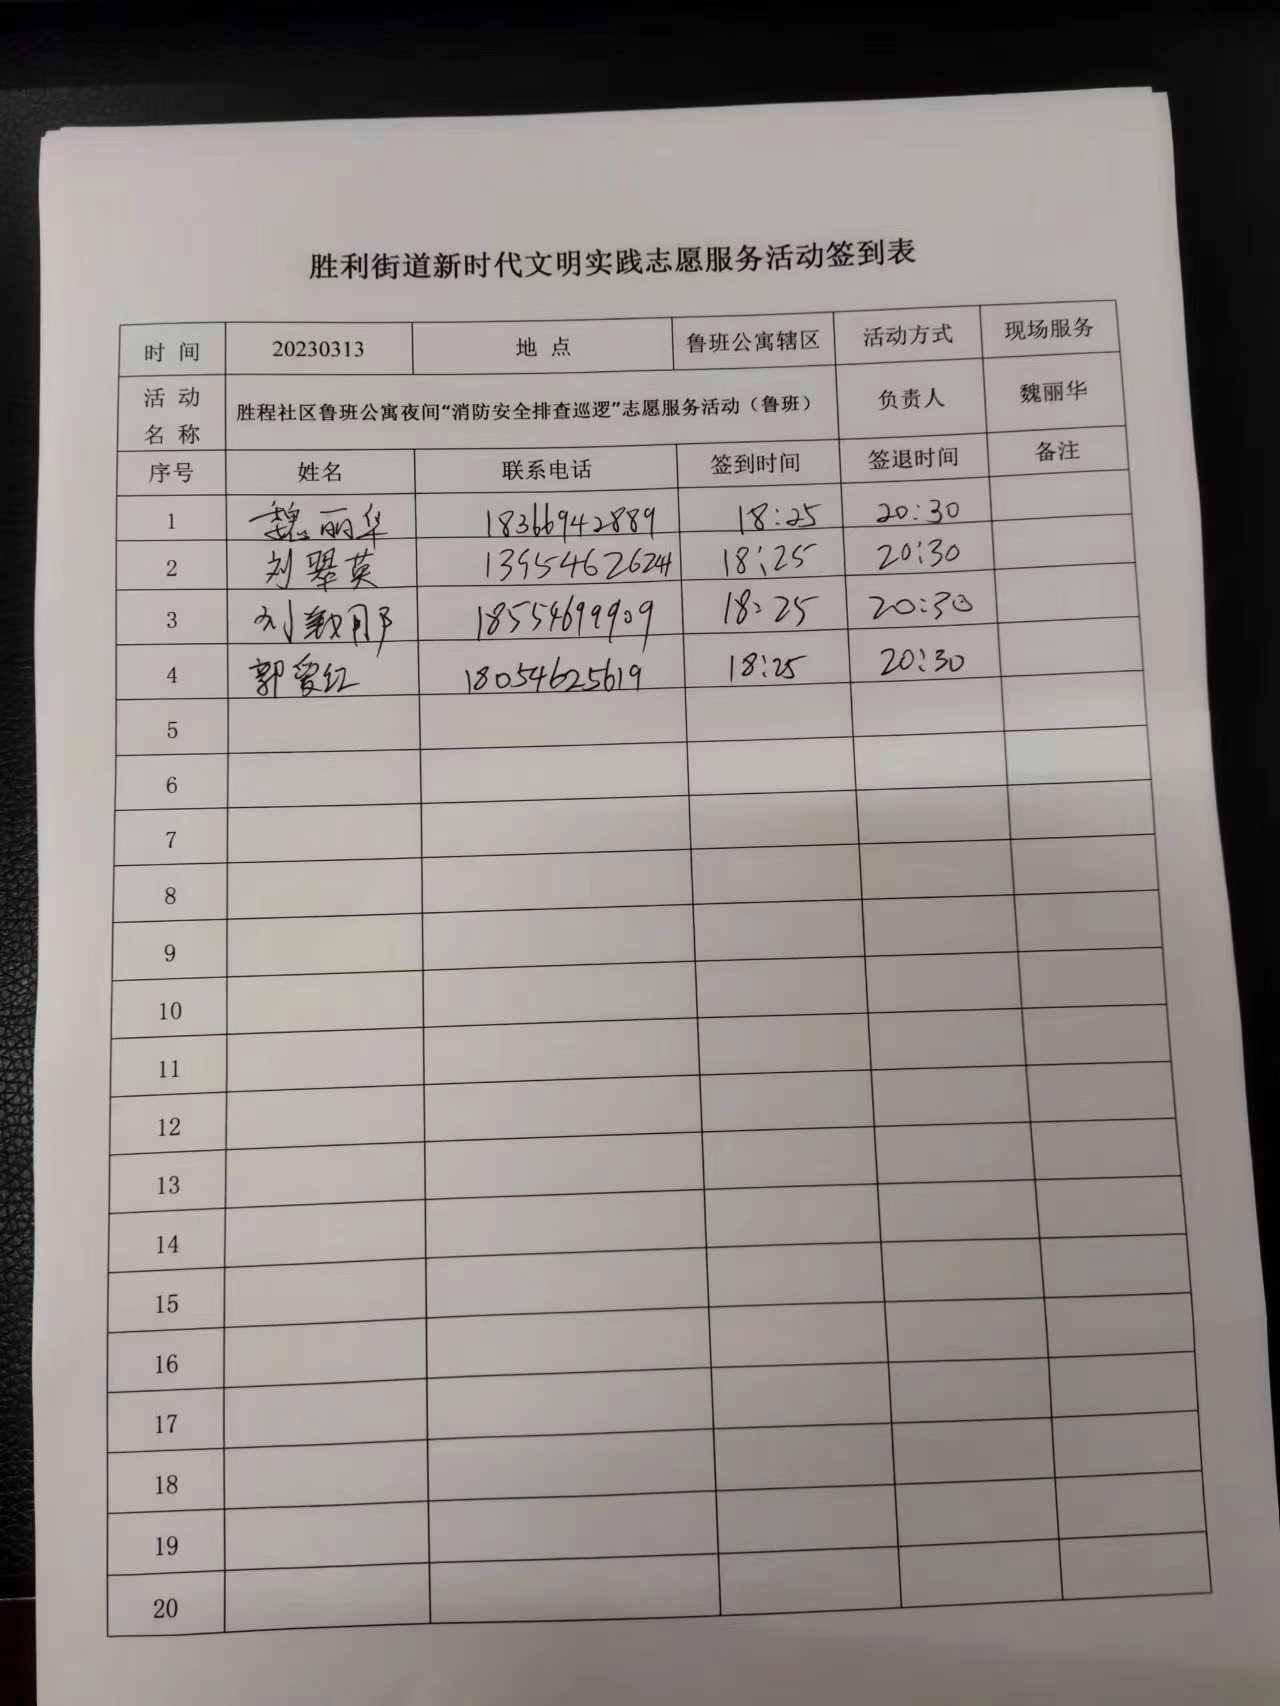 胜利街道新时代文明实践志愿服务活动签到表
时 间 20230313 地 点 鲁班公寓辖区 活动方式 现场服务
活 动 名 称 胜程社区鲁班公寓夜间“消防安全排查巡逻”志愿服务活动（鲁班） 负责人 魏丽华
序号 姓名 联系电话 签到时间 签退时间 备注
1 魏丽华 18366942889 18:25 20:30
2 刘翠英 13954626241 18:25 20:30
3 刘 18554699909 18:25 20:30
4 郭爱红 18054625619 18:25 20:30
5
6
7
8
9
10
11
12
13
14
15
16
17
18
19
20